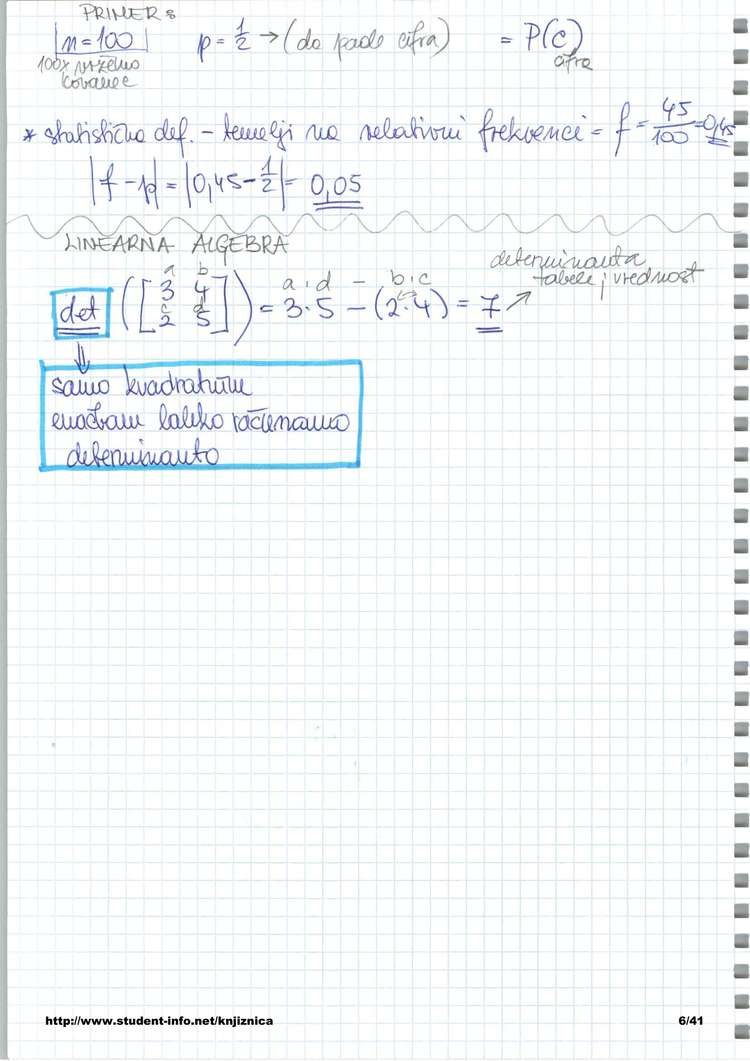 PRIMER:
n=100 p = 1/2 → (da pade cifra) = P(C)
cifra
100x vržemo
kovanec
* statistična def. - temelji na relativni frekvenci = f = 45/100 = 0,45
|f - p| = |0,45 - 1/2| = 0,05
LINEARNA ALGEBRA
determinanta
tabele; vrednost
a b a · d - b · c
det ([3 4
2 5]) = 3·5 - (2·4) = 7 ↗
c d
⇓
samo kvadratnim
enačbam lahko računamo
determinanto
http://www.student-info.net/knjiznica 6/41